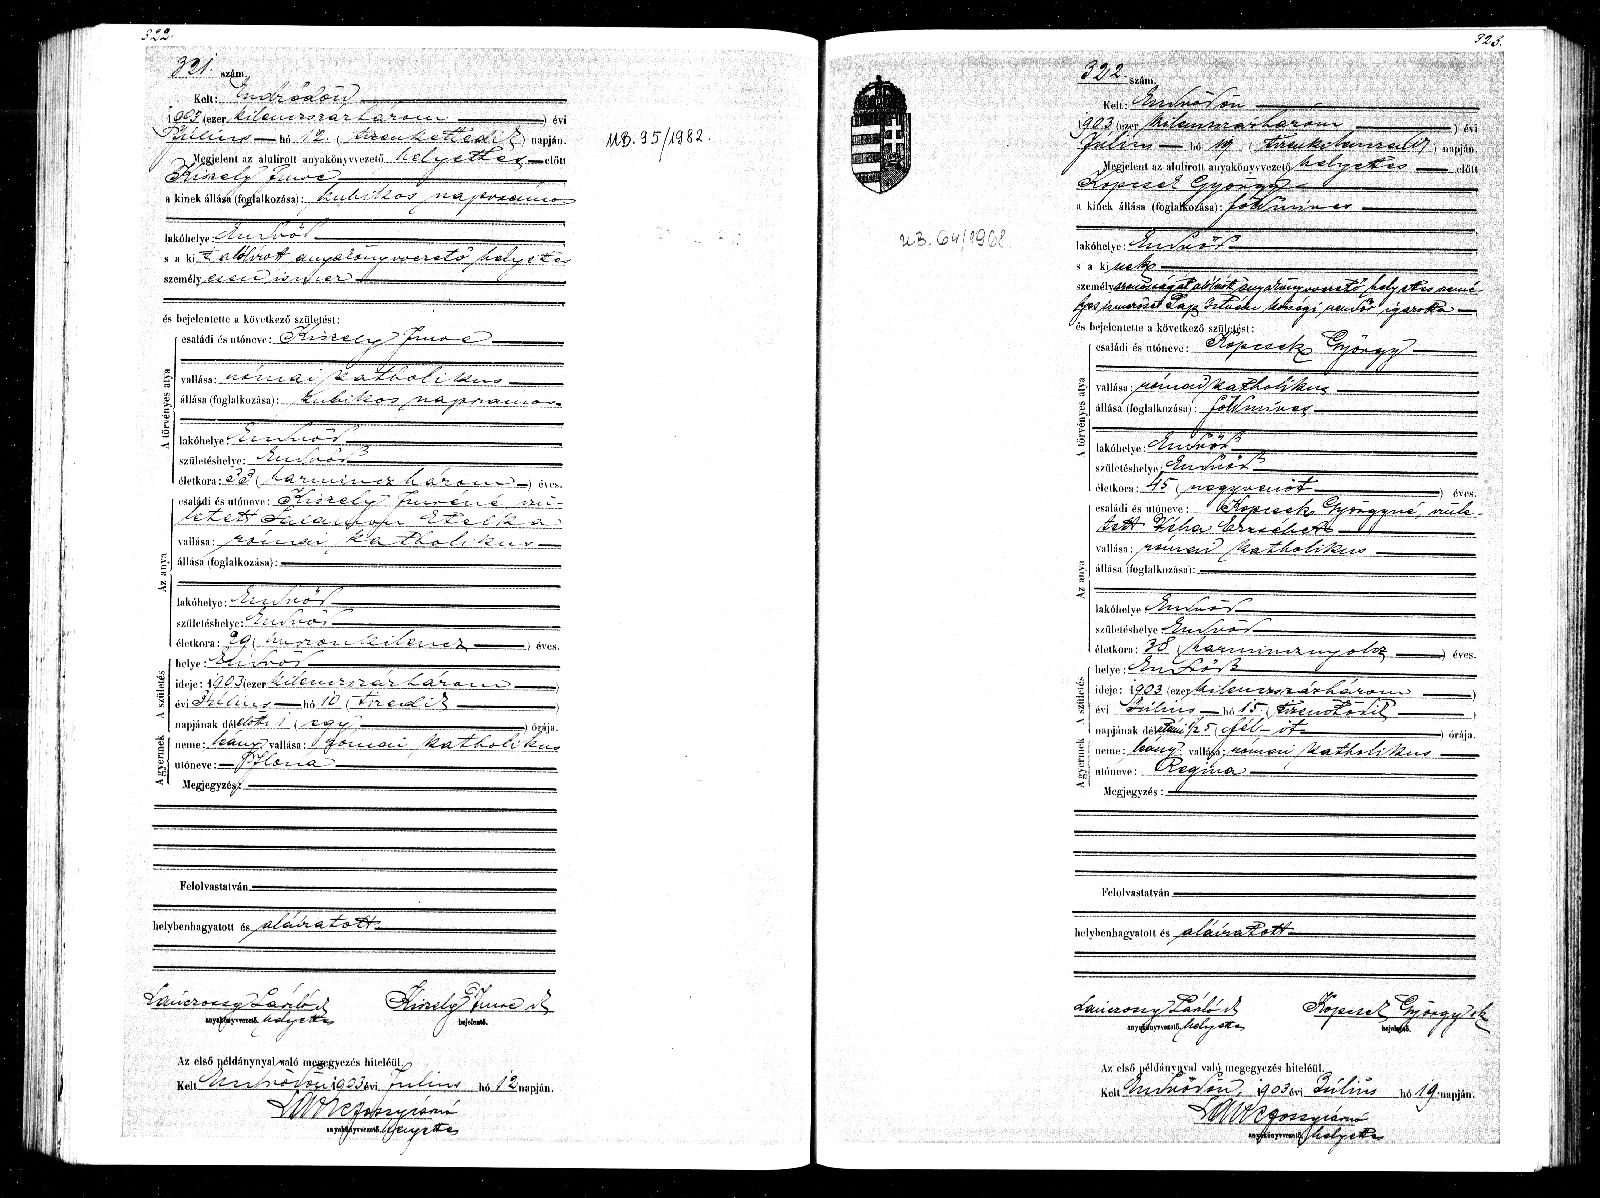 322.
321. szám.
Kelt: Endrődön
1903 (ezer kilenczszázhárom) évi
Július hó 12. (tizenkettedik) napján.
Megjelent az alulirott anyakönyvvezető helyettes előtt
Kiszely Imre
a kinek állása (foglalkozása): kubikos napszámos
lakóhelye Endrőd
s a kit alólirott anyakönyvvezető helyettes
személyesen ismer
és bejelentette a következő születést:
A törvényes atya
családi és utóneve: Kiszely Imre
vallása: római katholikus
állása (foglalkozása): kubikos napszámos
lakóhelye Endrőd
születéshelye: Endrőd
életkora: 33 (harminczhárom) éves.
Az anya
családi és utóneve: Kiszely Imréné szü-
letett Salamon Etelka
vallása: római katholikus
állása (foglalkozása):
lakóhelye: Endrőd
születéshelye: Endrőd
életkora: 29 (huszonkilencz) éves.
A születés
helye: Endrőd
ideje: 1903 (ezer kilenczszázhárom)
évi Július hó 10 (tizedik)
napjának délelőtti 1 (egy) órája.
A gyermek
neme: leány vallása: római katholikus
utóneve: Ilona
Megjegyzés:
Felolvastatván
helybenhagyatott és aláiratott
László
Kiszely Imre sk
anyakönyvvezető helyettes
bejelentő.
Az első példánynyal való megegyezés hiteléül.
Kelt Endrődön, 1903 évi Július hó 12 napján.
anyakönyvvezető helyettes
MB. 95/1982.
323.
322 szám.
Kelt: Endrődön
1903 (ezer kilenczszázhárom) évi
Július hó 19 (tizenkilenczedik) napján.
Megjelent az alulirott anyakönyvvezető helyettes előtt
Kopcsek György
a kinek állása (foglalkozása): földmíves
lakóhelye: Endrőd
s a kinek
személyazonosságát alólirott anyakönyvvezető helyettes
István községi rendőr igazolta
és bejelentette a következő születést:
A törvényes atya
családi és utóneve: Kopcsek György
vallása: római katholikus
állása (foglalkozása): földmíves
lakóhelye: Endrőd
születéshelye: Endrőd
életkora: 45 (negyvenöt) éves.
Az anya
családi és utóneve: Kopcsek Györgyné, szüle-
tett Véha Erzsébet
vallása: római katholikus
állása (foglalkozása):
lakóhelye Endrőd
születéshelye Endrőd
életkora: 38 (harmincznyolcz) éves.
A születés
helye: Endrőd
ideje: 1903 (ezer kilenczszázhárom)
évi Július hó 15. (tizenötödik)
napjának délutáni ½5 (fél öt) órája.
A gyermek
neme: leány vallása: római katholikus
utóneve: Regina
Megjegyzés:
Felolvastatván
helybenhagyatott és aláiratott
László
Kopcsek György sk
anyakönyvvezető helyettes
bejelentő.
Az első példánynyal való megegyezés hiteléül.
Kelt Endrődön, 1903 évi Július hó 19 napján.
anyakönyvvezető helyettes
MB. 64/1968